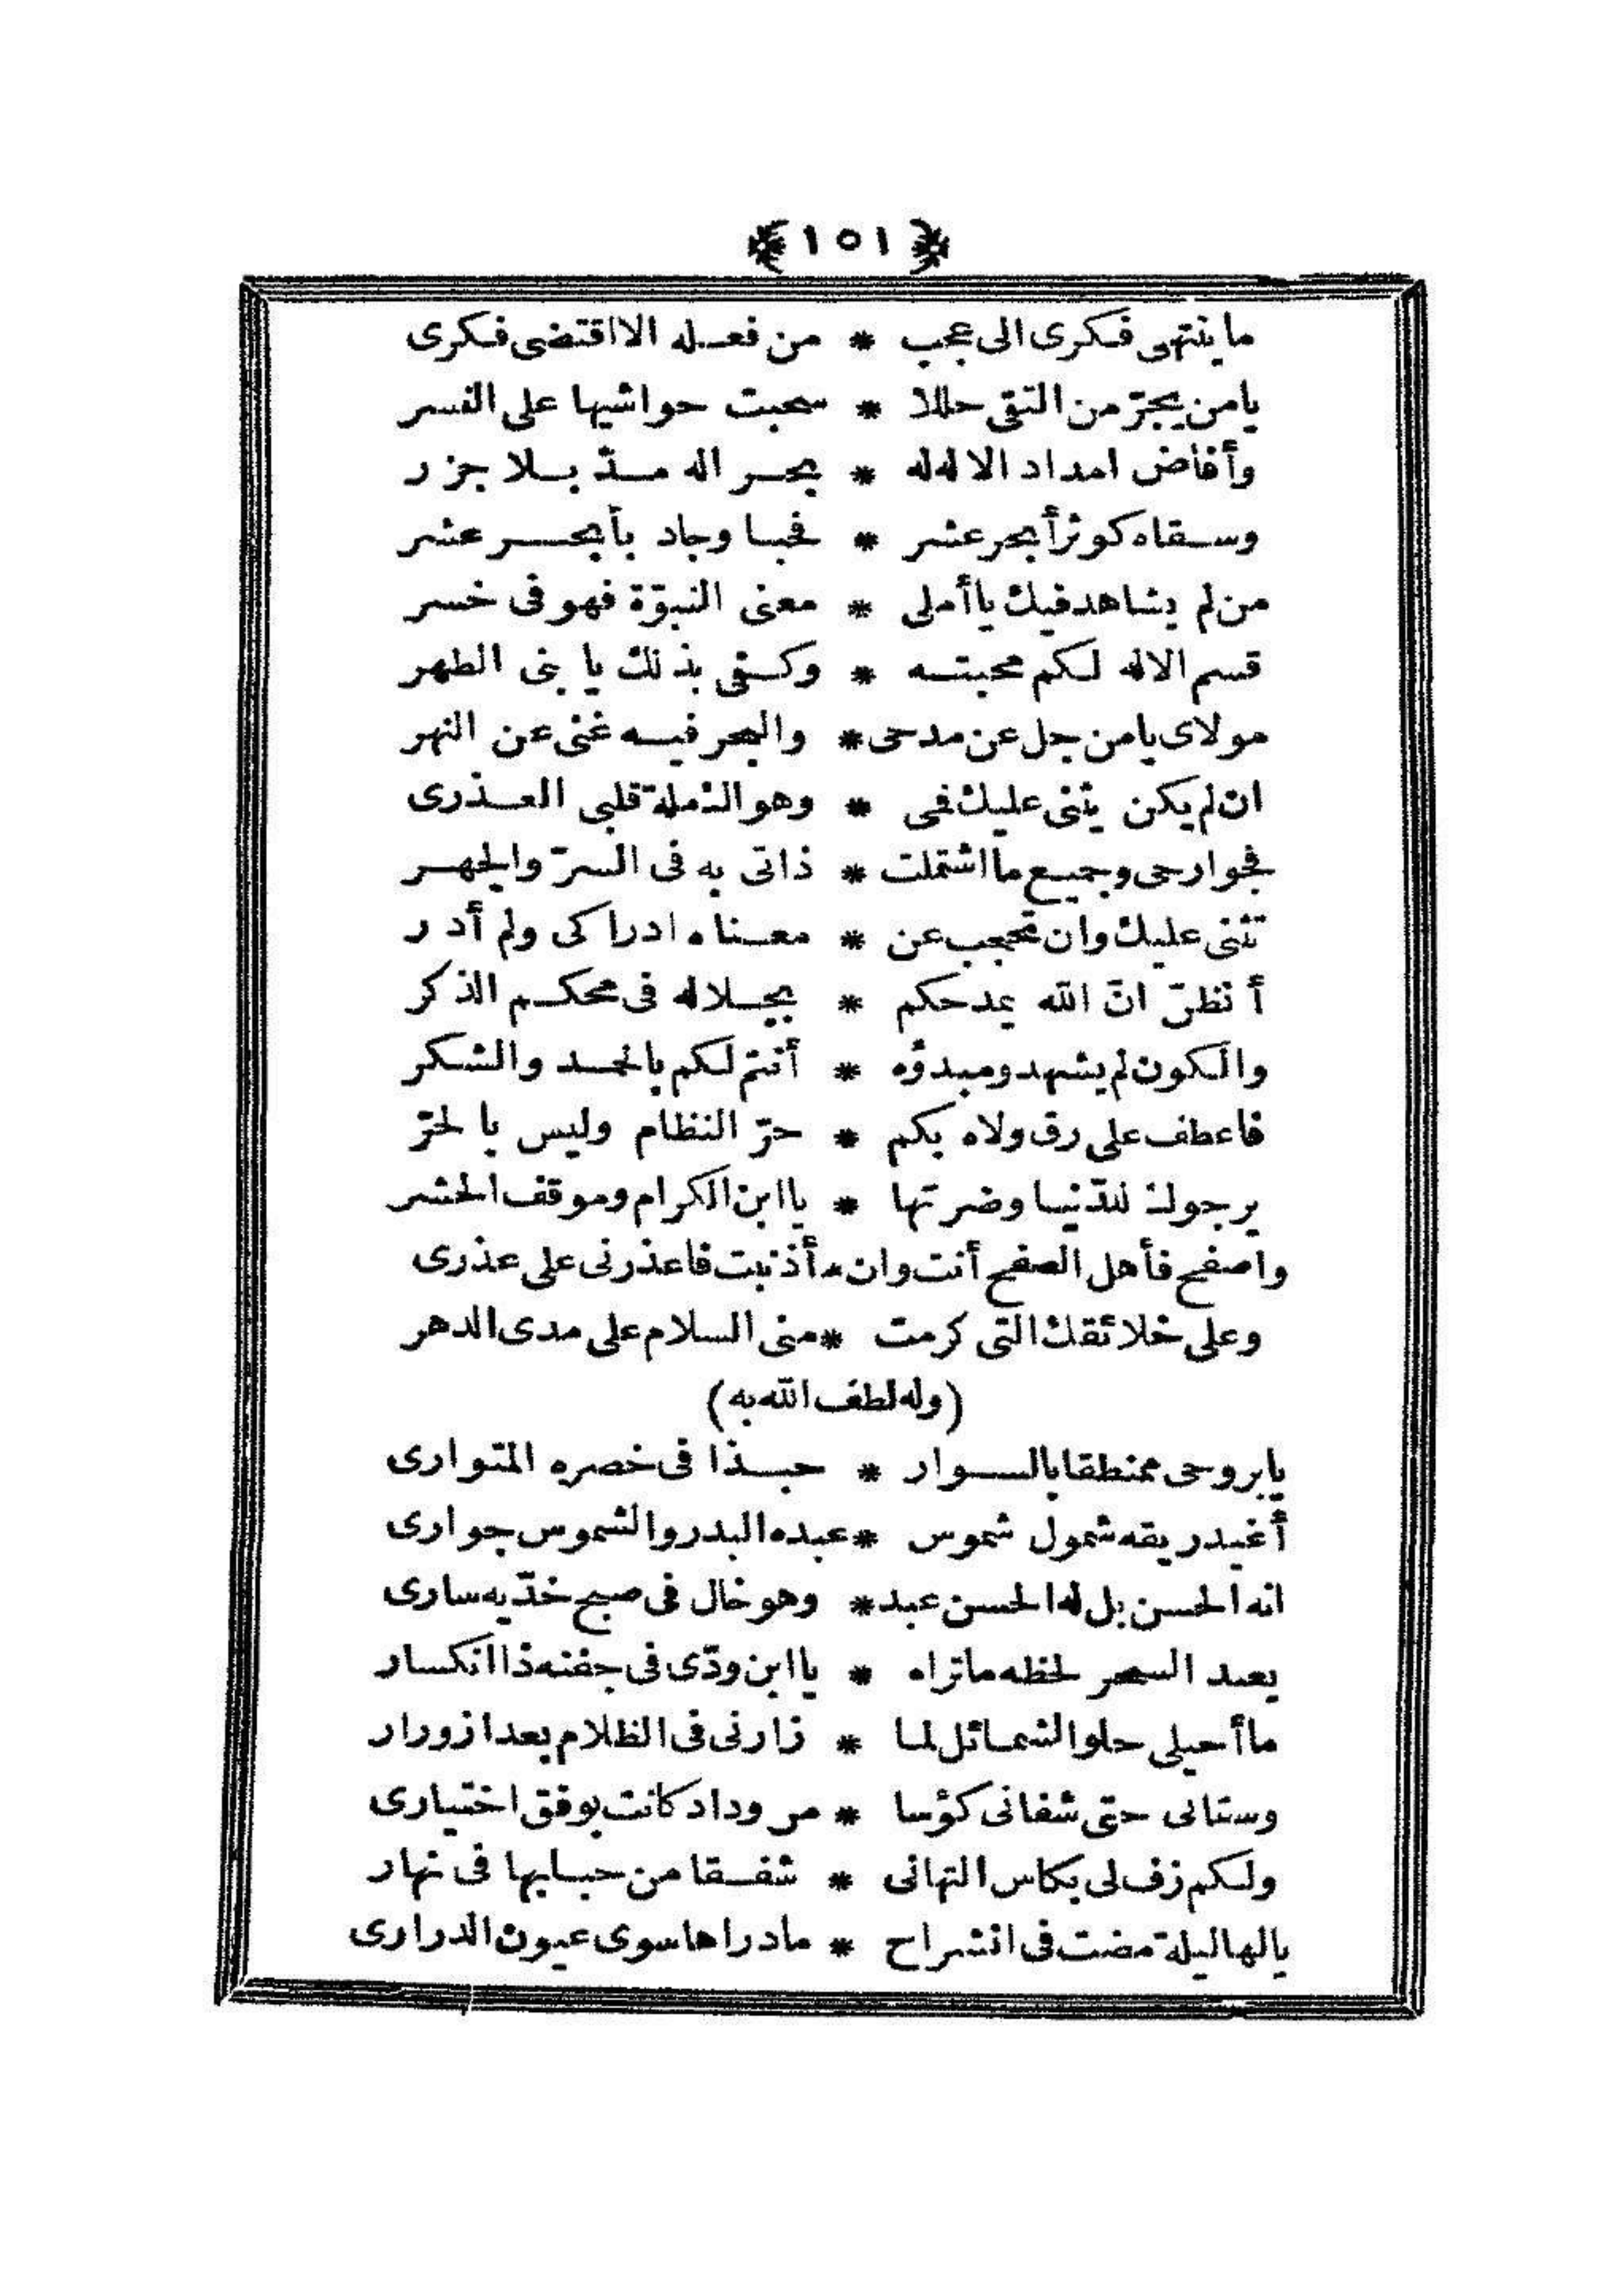 ﴿١٥١﴾
ما ينتهى فكرى الى عجب * من فعله الا اقتضى فكرى
يا من يجرّ من التقى حللا * سحبت حواشيها على النسر
وأفاض امداد الاله له * بحر اله مدّ بلا جزر
وسقاه كوثرأ بحر عشر * فحبا وجاد بأبحر عشر
من لم يشاهد فيك يا أملى * معنى النبوّة فهو فى خسر
قسم الاله لكم محبته * وكفى بذلك يا بنى الطهر
مولاى يا من جل عن مدحى * والبحر فيه غنى عن النهر
ان لم يكن يثنى عليك فمى * وهو الذ ملة قلبى العذرى
فجوارحى وجميع ما اشتملت * ذاتى به فى السرّ والجهر
تثنى عليك وان تحجب عن * معناه ادراكى ولم أدر
أتظنّ انّ الله يمدحكم * بجلاله فى محكم الذكر
والكون لم يشهد ومبدؤه * أنتم لكم بالحمد والشكر
فاعطف على رق ولاه بكم * حرّ النظام وليس بالحرّ
يرجوك للدّنيا وضرتها * يا ابن الكرام وموقف الحشر
واصفح فأهل الصفح أنت وان * أذنبت فاعذرنى على عذرى
وعلى خلائقك التى كرمت * منى السلام على مدى الدهر
(وله لطف الله به)
يا بروحى ممنطقا بالسوار * حبذا فى خصره المتوارى
أغيد ريقه شمول شموس * عبده البدر والشموس جوارى
انه الحسن بل له الحسن عبد * وهو خال فى صبح خدّيه سارى
يعبد السحر لحظه ما تراه * يا ابن ودّى فى جفنه ذا انكسار
ما أحيلى حلو الشمائل لما * زارنى فى الظلام بعد ازورار
وسقانى حتى شفانى كؤسا * من وداد كانت بوفق اختيارى
ولكم زف لى بكاس التهانى * شفقا من حبابها فى نهار
يا لها ليلة مضت فى انشراح * ما دراها سوى عيون الدرارى